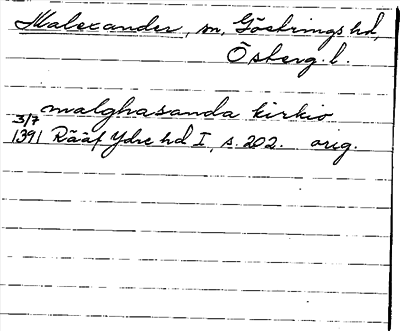 Malexander, sn, Göstrings hd,
Österg. l.
malghasanda kirkio
3/7
1391 Rääf Ydre hd I, s. 202. orig.